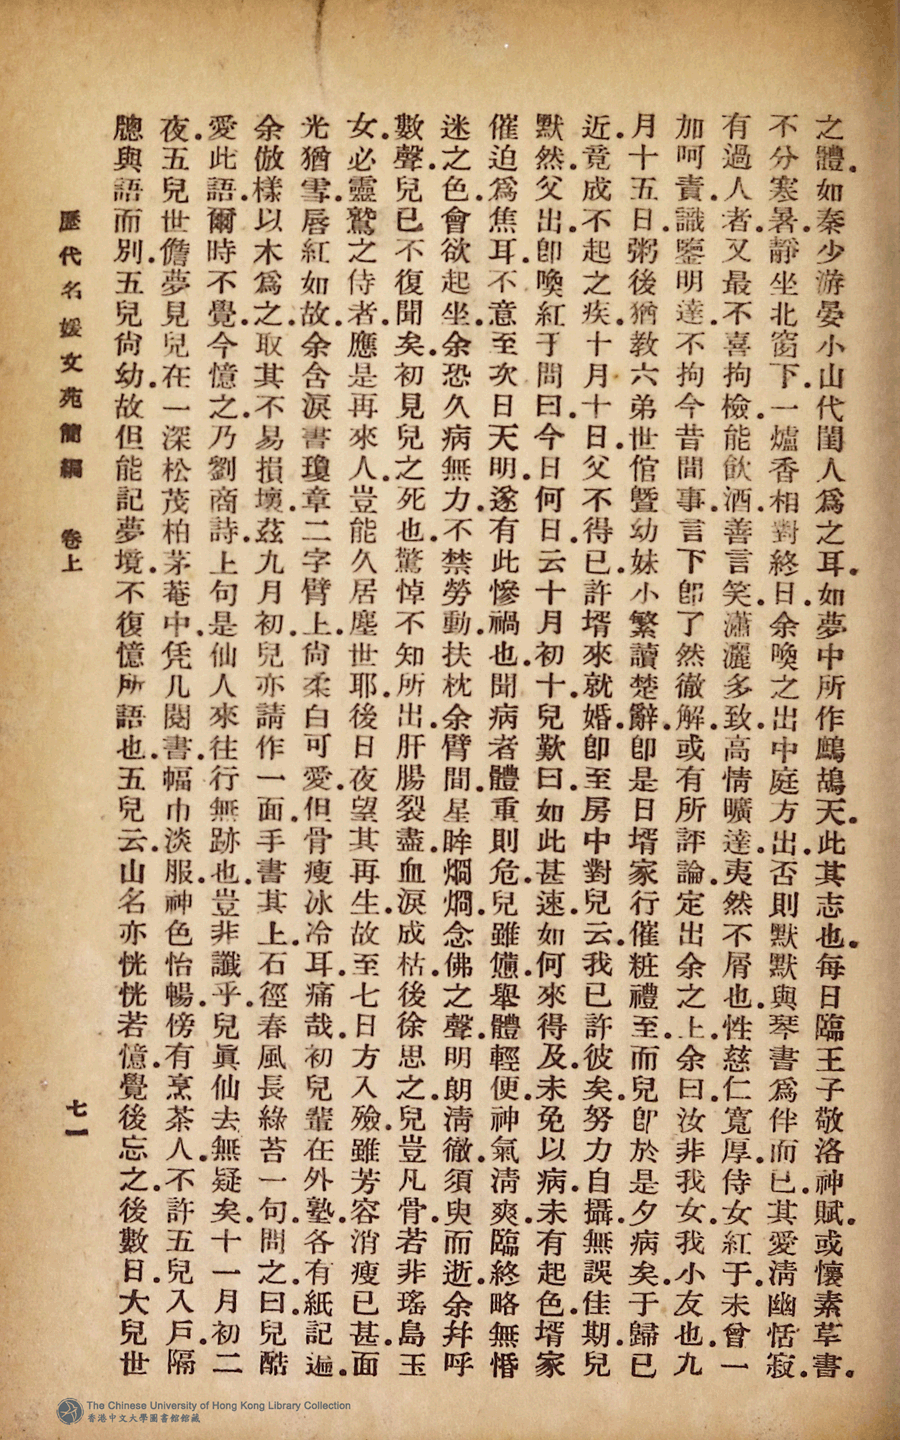 之體。如秦少游晏小山代閨人爲之耳。如夢中所作鷓鴣天。此其志也。每日臨王子敬洛神賦。或懷素草書。
不分寒暑。靜坐北窗下。一爐香相對終日。余喚之出中庭方出。否則默默與琴書爲伴而已。其愛淸幽恬寂。
有過人者。又最不喜拘檢。能飮酒。善言笑。瀟灑多致。高情曠達。夷然不屑也。性慈仁寬厚。侍女紅于。未曾一
加呵責。識鑒明達。不拘今昔間事。言下卽了然徹解。或有所評論。定出余之上。余曰。汝非我女。我小友也。九
月十五日。粥後猶教六弟世倌曁幼妹小繁讀楚辭。卽是日壻家行催粧禮至。而兒卽於是夕病矣。于歸已
近。竟成不起之疾。十月十日。父不得已許壻來就婚。卽至房中對兒云。我已許彼矣。努力自攝。無誤佳期。兒
默然。父出。卽喚紅于問曰。今日何日。云十月初十。兒歎曰。如此甚速。如何來得及。未免以病。未有起色。壻家
催迫爲焦耳。不意至次日天明。遂有此慘禍也。聞病者體重則危。兒雖憊。舉體輕便。神氣淸爽。臨終略無惛
迷之色。會欲起坐。余恐久病無力。不禁勞動。扶枕余臂間。星眸熠熠。念佛之聲。明朗淸徹。須臾而逝。余幷呼
數聲。兒已不復聞矣。初見兒之死也。驚悼不知所出。肝腸裂盡。血淚成枯。後徐思之。兒豈凡骨。若非瑤島玉
女。必靈鷲之侍者。應是再來人。豈能久居塵世耶。後日夜望其再生。故至七日方入殮。雖芳容消瘦已甚。面
光猶雪。唇紅如故。余含淚書瓊章二字臂上。尙柔白可愛。但骨瘦冰冷耳。痛哉。初兒輩在外塾。各有紙記遍。
余倣樣。以木爲之。取其不易損壞。茲九月初。兒亦請作一面。手書其上。石徑春風長綠苔一句。問之。曰。兒酷
愛此語。爾時不覺。今憶之。乃劉商詩。上句是仙人來往行無跡也。豈非讖乎。兒眞仙去無疑矣。十一月初二
夜。五兒世儋夢見兒在一深松茂柏茅菴中。凭几閱書。幅巾淡服。神色怡暢。傍有烹茶人。不許五兒入戶。隔
牕與語而別。五兒尙幼。故但能記夢境。不復憶所語也。五兒云。山名亦恍恍若憶。覺後忘之。後數日。大兒世
歷代名媛文苑簡編 卷上 七一
The Chinese University of Hong Kong Library Collection
香港中文大學圖書館館藏